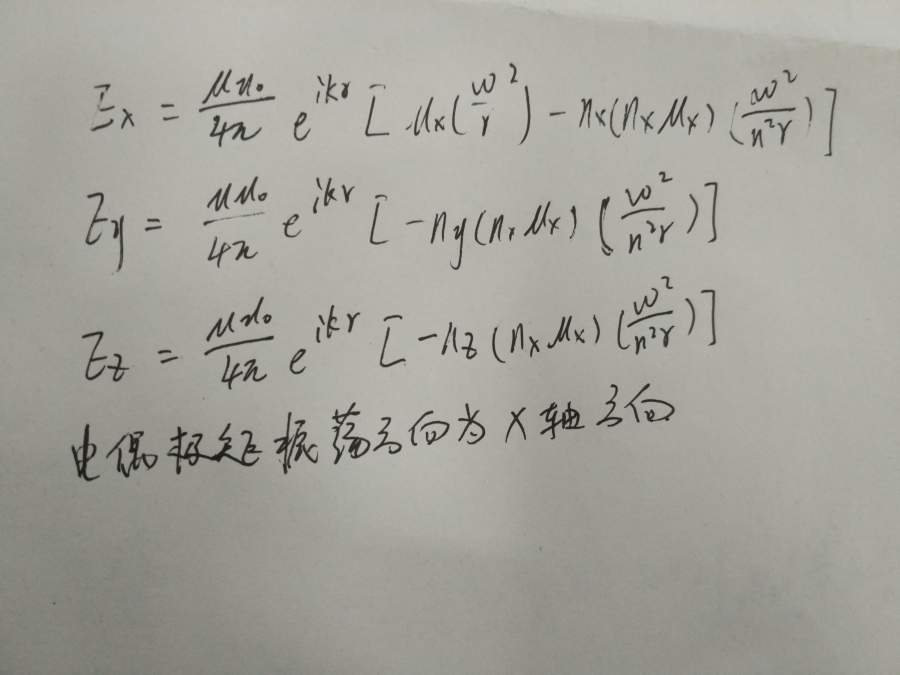 Ex = μμ₀/4π e^{ikr} [ μx(ω/r)² - nx(nxμx) (ω²/n²r) ]
Ey = μμ₀/4π e^{ikr} [ -ny(nxμx) (ω²/n²r) ]
Ez = μμ₀/4π e^{ikr} [ -nz(nxμx) (ω²/n²r) ]
电偶极矩振荡方向为X轴方向